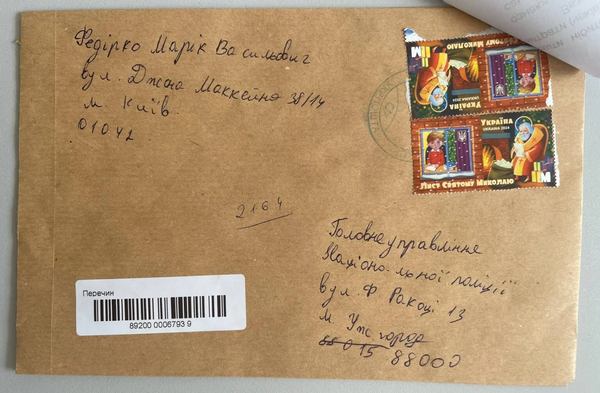 Федірко Марік Васильович
вул. Джона Маккейна 38/14
м. Київ.
01042
УКРАЇНА
UKRAINE 2024
M
ЛИСТ СВЯТОМУ МИКОЛАЮ
УКРАЇНА
UKRAINE 2024
M
ЛИСТ СВЯТОМУ МИКОЛАЮ
2164
Головне управління
Національної поліції
вул. Ф Ракоці 13
м. Ужгород
88015 88000
Перечин
89200 0006793 9